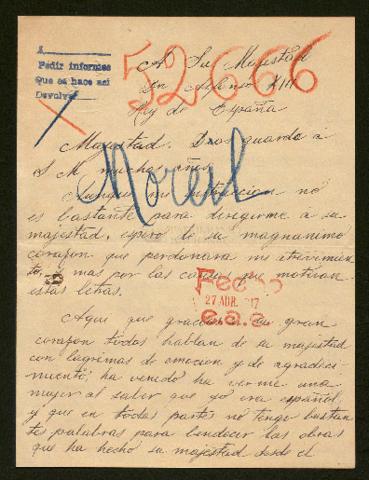 A
Pedir informes
Que se hace así
Devolver
52666
A Su Majestad
Don Alfonso XIII
Rey de España
Majestad. Dios guarde a
S M muchos años.
Aunque mi no
es bastante para dirigirme a su
majestad, espero de su magnanimo
corazon que perdonara mi atrevimien
to, mas por las causas que motivan
estas letras.
Aqui que gracias su gran
corazon todos hablan de su majestad
con lagrimas de emocion y de agradeci
miento, ha venido ha verme una
mujer al saber que yo era español,
y que en todas partes no tengo bastan
tes palabras para bendecir las obras
que ha hecho su majestad desde el
Fecho
27 ABR. 917